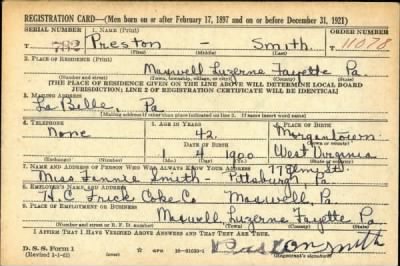 REGISTRATION CARD—(Men born on or after February 17, 1897 and on or before December 31, 1921)
SERIAL NUMBER 1. NAME (Print) ORDER NUMBER
T 782 Preston - Smith. 11078
(First) (Middle) (Last)
2. PLACE OF RESIDENCE (Print)
Maxwell Luzerne Fayette Pa.
(Number and street) (Town, township, village, or city) (County) (State)
[THE PLACE OF RESIDENCE GIVEN ON THE LINE ABOVE WILL DETERMINE LOCAL BOARD
JURISDICTION; LINE 2 OF REGISTRATION CERTIFICATE WILL BE IDENTICAL]
3. MAILING ADDRESS
La Belle, Pa
[Mailing address if other than place indicated on line 2. If same insert word same]
4. TELEPHONE 5. AGE IN YEARS 6. PLACE OF BIRTH
None 42. Morgantown
DATE OF BIRTH (Town or county)
1 4 1900 West Virginia
(Mo.) (Day) (Yr.) (State or country)
7. NAME AND ADDRESS OF PERSON WHO WILL ALWAYS KNOW YOUR ADDRESS
Miss Fannie Smith - Pittsburgh, Pa.
8. EMPLOYER'S NAME AND ADDRESS
H.C. Frick Coke Co Maxwell, Pa.
9. PLACE OF EMPLOYMENT OR BUSINESS
Maxwell, Luzerne Fayette Pa
(Number and street or R. F. D. number) (Town) (County) (State)
I AFFIRM THAT I HAVE VERIFIED ABOVE ANSWERS AND THAT THEY ARE TRUE.
D. S. S. Form 1
(Revised 1-1-42) GPO 16-21630-1 Preston Smith